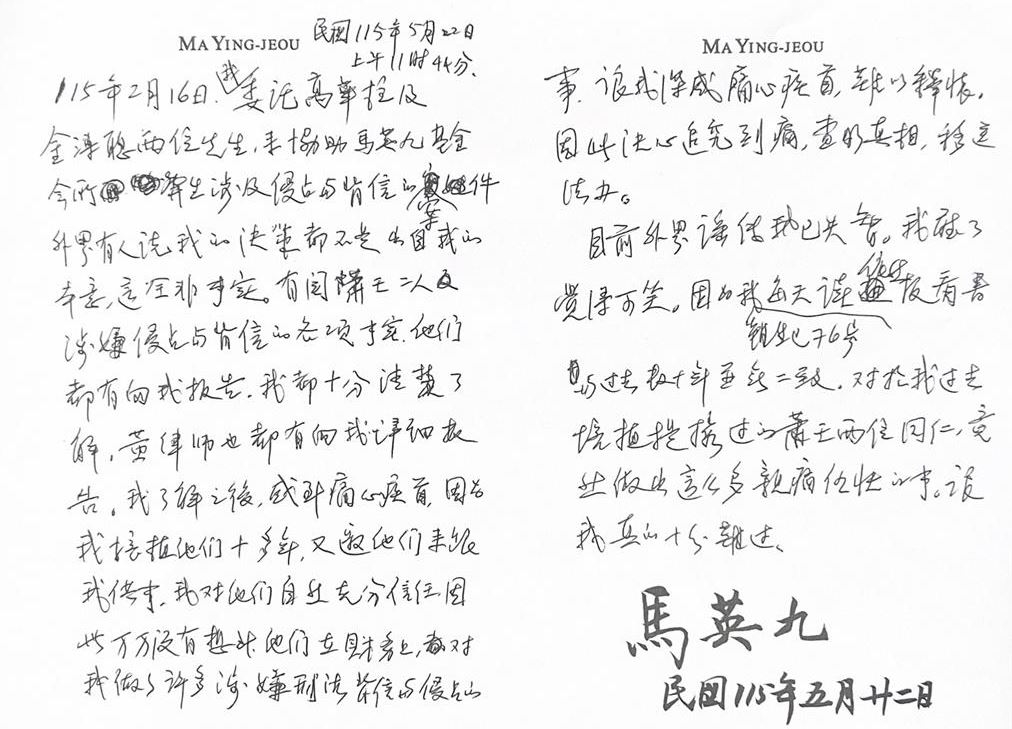 MA YING-JEOU
民國115年5月22日
上午11時44分.
115年2月16日.我委託高華柱及
金溥聰兩位先生,來協助馬英九基金
會所發生涉及侵占与背信的案件
外界有人說我的決策都不是出自我的
本意,這全非事實。有関蕭王二人
涉嫌侵占与背信的各項事實.他们
都有向我报告.我都十分清楚了
解,黃律师也都有向我详细报
告。我了解之後,感到痛心疾首,因为
我培植他们十多年,又邀他们来跟
我供事.我对他们自然充分信任因
此万万没有想到他们在財務上,都对
我做了许多涉嫌刑法背信与侵占的
MA YING-JEOU
事.讓我深感痛心疾首,難以釋怀.
因此决心追究到底,查明真相,移送
法办。
目前外界谣传我已失智。我聽了
覺得可笑。因为我每天读报看書
与过去数十年並無二致.对於我过去
培植提携过的蕭王兩位同仁,竟
然做出這么多親痛仇快的事。讓
我真的十分難过。
馬英九
民國115年五月廿二日